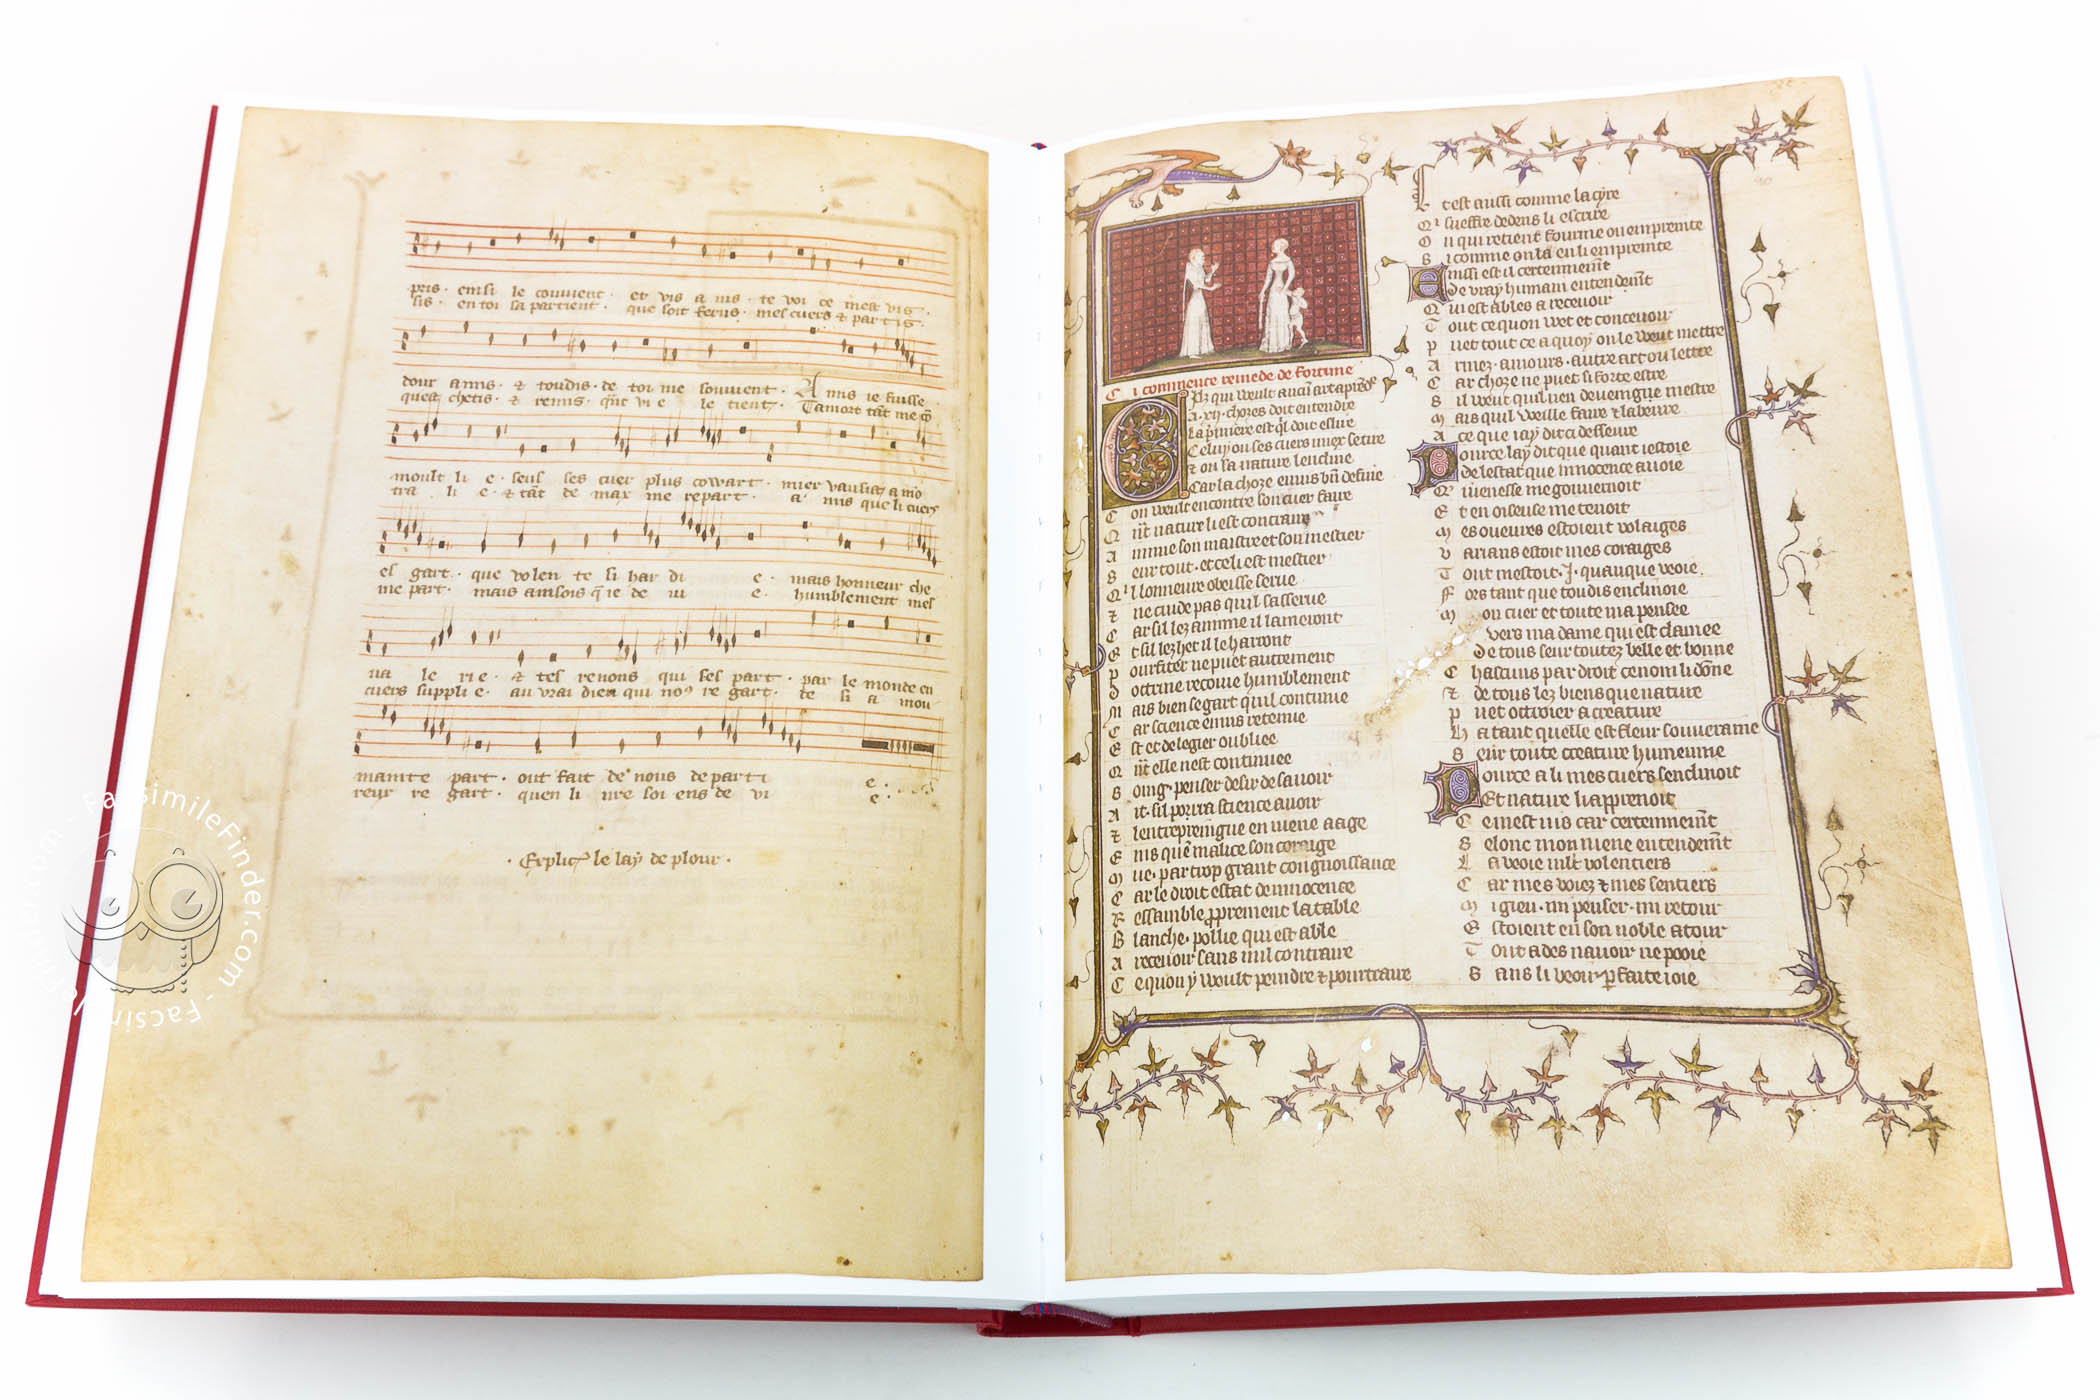 pris · emsi le couuent · et vis a uis · te voi ce mest vis ·
sis · en toi sa partient · que soit ferus · mes cuers & partis
dour amis · & toudis · de toi me souuient · Amis ie fuisse
quest chetis · & remis · qnt vi e le tient · Tamort tāt me
moult li e · seul ses cuer plus cowart · mier vausist a mō
tra li e · & tāt de max me repart · a mis que li cuers
el gart · que volen te si har di e · mais honneur che
me part · mais amsois q̄ ie de ui e · humblement mes
ua le rie · & tes renons qui ses part · par le monde en
cuers supplie · au vrai dieu qui no9 re gart · te si a mou
mainte part · ont fait de nous departi e ·
reur re gart · quen li ure soi ens de vi e ·
· Explic̄ le lay de plour ·
Ci commence remede de fortune
Cilz qui weult aucun art aprēdre
A · xij · chozes doit entendre
La p̄miere est q̄l doit eslire
Celuy ou ses cuers miex se tire
& ou sa nature lencline
Car la choze enuis bn̄ define
Con weult encontre son cuer faire
Qn̄t nature li est contraire
Aimme son maistre et son mestier
Seur tout · et ce li est mestier
Qil lonneure obeisse serue
& ne cuide pas quil sasserue
Car sil lez aimme il lameront
Et sil lez het il le harront
Pourfiter ne puet autrement
Doctrine recoiue humblement
Mais bien se gart quil continue
Car science enuis retenue
Est et de legier oubliee
Qn̄t elle nest continuee
Soing · penser · desir de sauoir
Ait · sil porra science auoir
& lentrepreingne en iuene aage
Eins que malice son corage
Mue · par trop grant congnoissance
Car le droit estat dinnocence
Ressamble pprement la table
Blanche · polie qui est able
A receuoir sans nul contraire
Ce quon y weult peindre & pourtraire
Et est aussi comme la cyre
Qi sueffre dedens li escrire
Ou qui retient fourme ou empreinte
Si comme on la en li empreinte
Einssi est il certeinnemt
De vray humain entendemt
Qui est ables a receuoir
Tout ce quon wet et conceuoir
Puet tout ce a quoy on le weut mettre
Armez · amours · autre art ou lettre
Car choze ne puet si forte estre
Sil weut quil nen deueingne mestre
Mais quil weille faire & labeure
A ce que iay dit ci desseure
Pour ce lay dit que quant iestoie
De lestat que innocence auoie
Que iuenesse me gouuernoit
Et en oiseuse me tenoit
Mes oueures estoient volaiges
Varians estoit mes coraiges
Tout mestoit · j · quanque veoie ·
Fors tant que toudis enclinoie
Mon cuer et toute ma pensee
Vers ma dame qui est clamee
De tous seur toutez belle et bonne
Chascuns par droit ce nom li dōne
& de tous lez biens que nature
Puet ottroier a creature
Ha tant quelle est fleur souuerainne
Seur toute creature humeinne
Pour ce a li mes cuers senclinoit
Et nature li apprenoit
Ce mest uis car certeinnemt
Selonc mon iuene entendemt
La veoie mlt volentiers
Car mes voiez & mes sentiers
Mi gieu · mi penser · mi retour
Estoient en son noble atour
Tout ades nauoir ne pooie
Sans li veoir pfaite ioie
FacsimileFinder.com - Facsimile